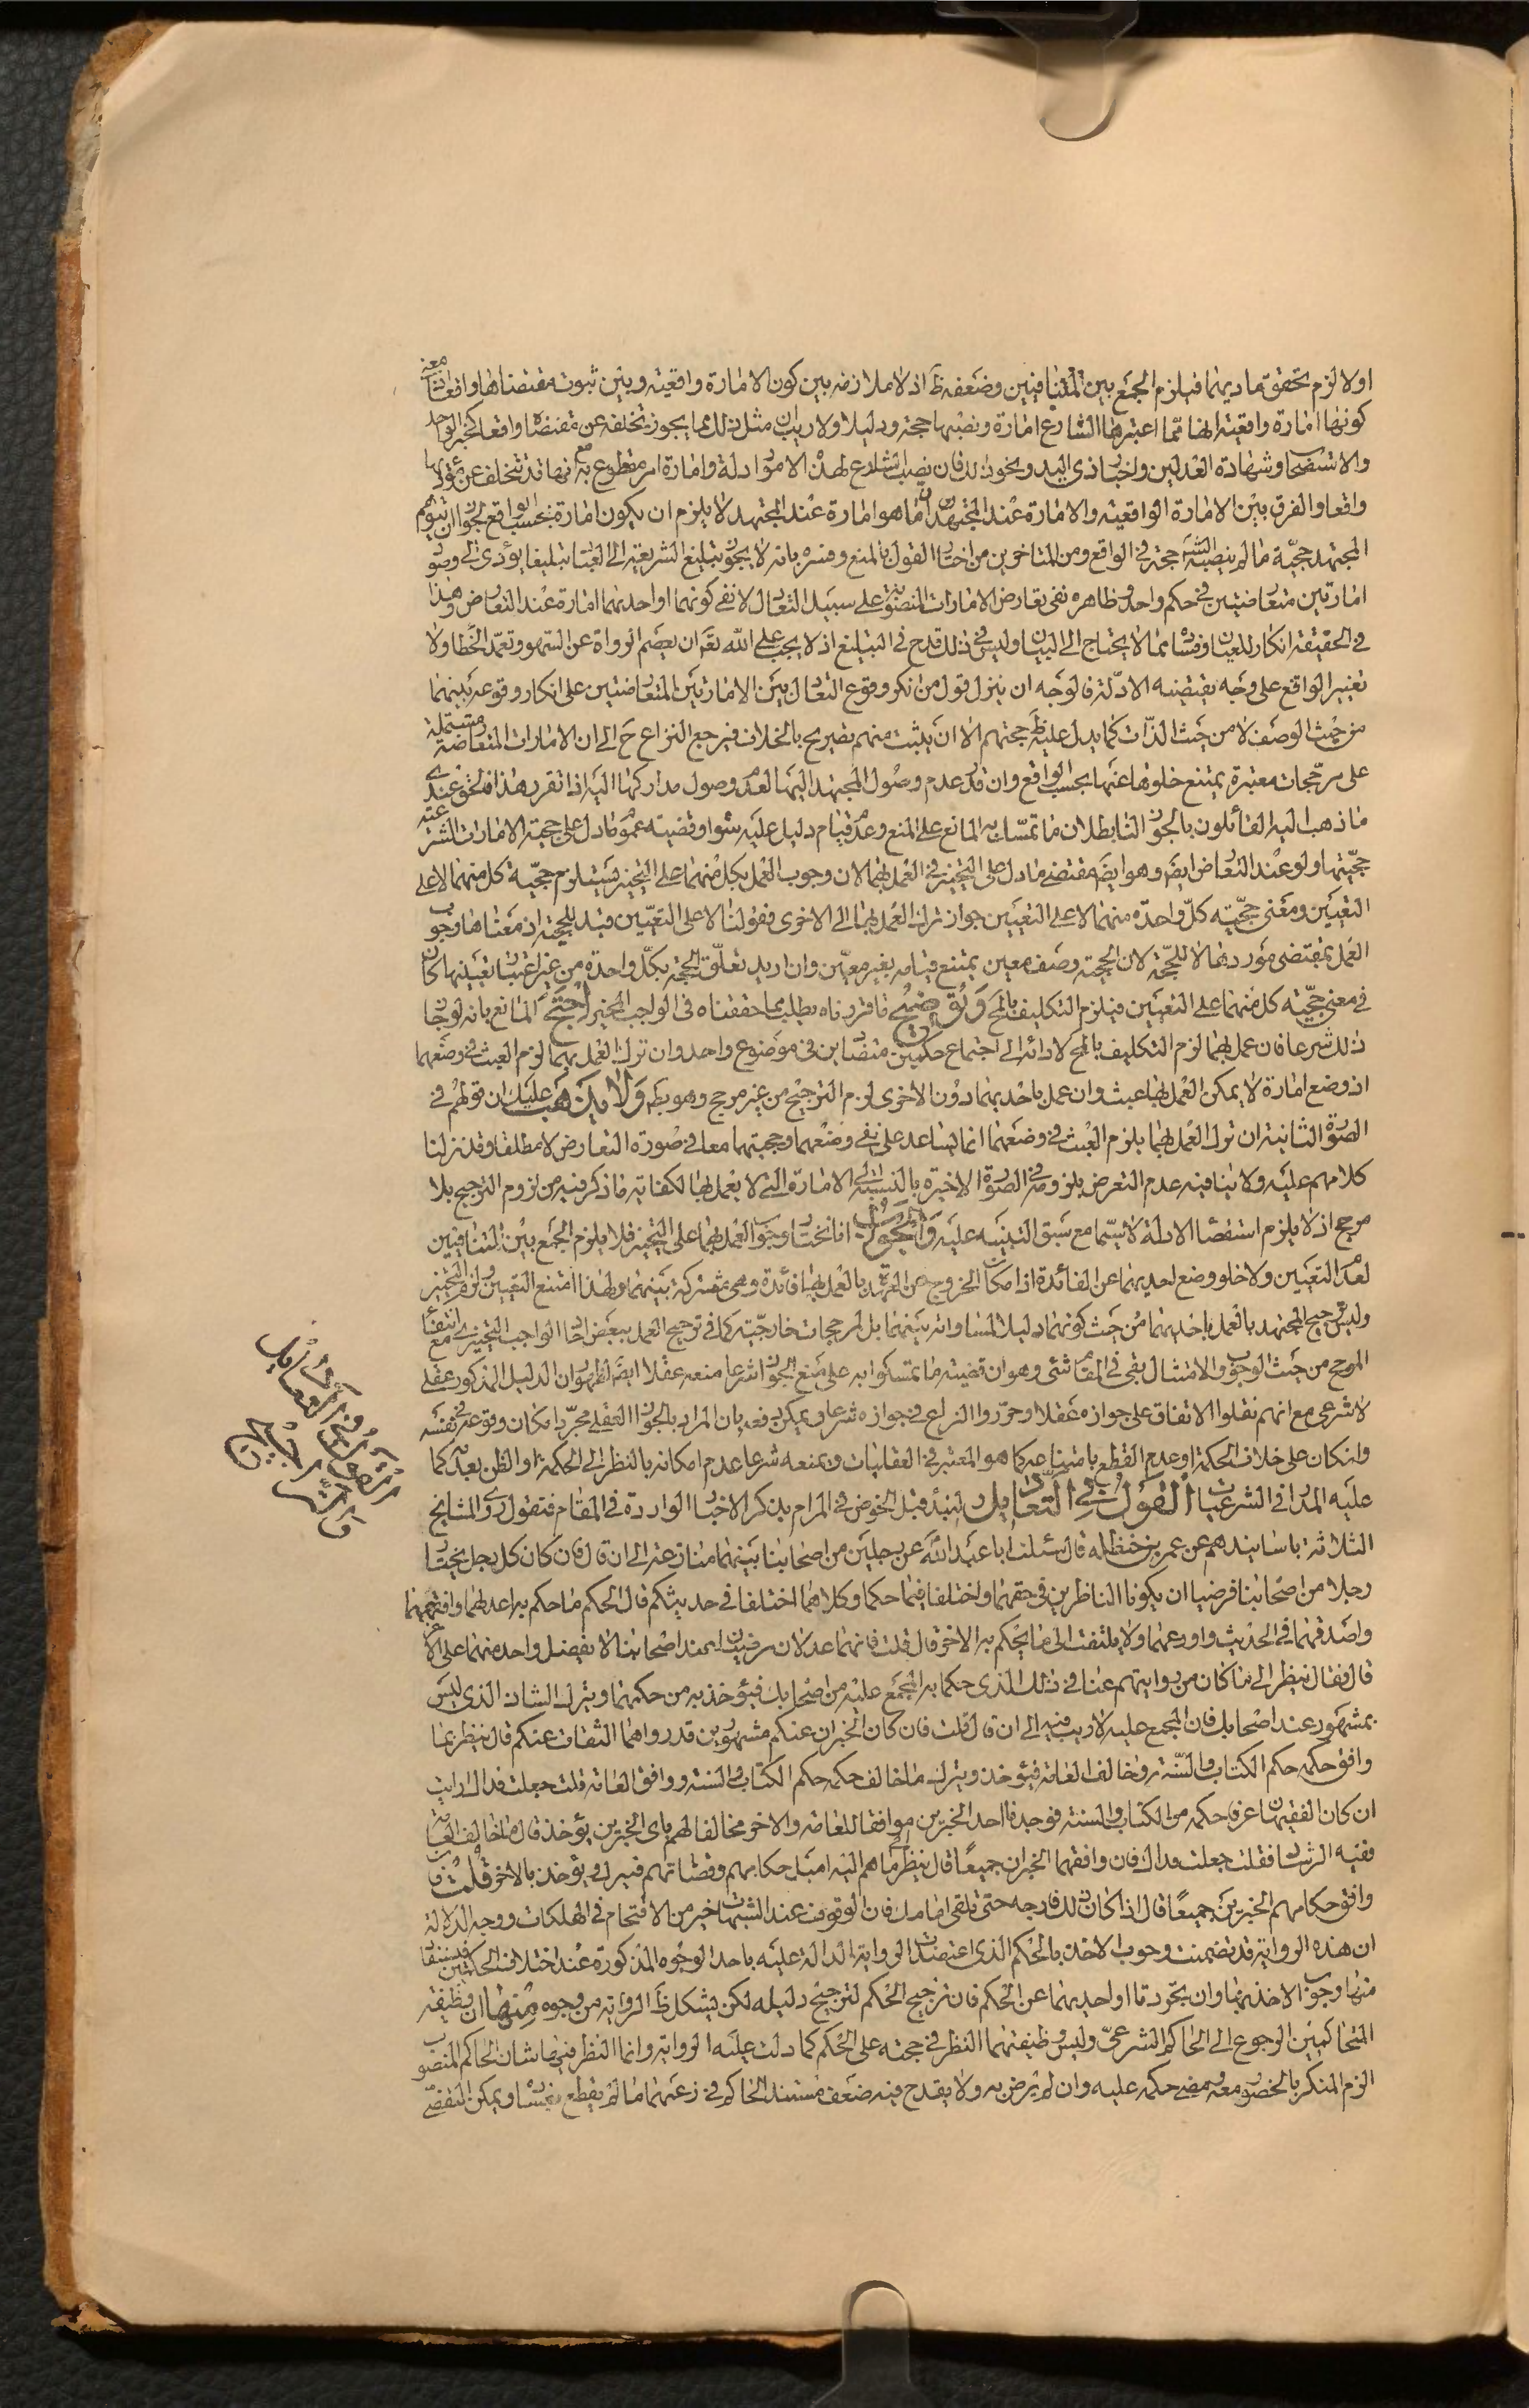 او لا لزم تحقق ماديهما فيلزم الجمع بين المتنافيين وضعفه ظ اذ لا ملازمة بين كون الامارة واقعية وبين ثبوت مقتضاها واقعا اذ معنى
كونها امارة واقعية انها مما اعتبرها الشارع امارة ونصبها حجة ودليلا ولا ريب ان مثل ذلك مما يجوز تخلفه عن مقتضاه واقعا كخبر الواحد
والاستصحاب وشهادة العدلين واخبار ذى اليد ونحو ذلك فان نصب الشارع لهذه الامور ادلة وامارة امر مقطوع به مع انها قد تتخلف عن مؤديها
واقعا والفرق بين الامارة الواقعية والامارة عند المجتهد ان ما هو امارة عند المجتهد لا يلزم ان يكون امارة بحسب الواقع لجواز ان يتوهم
المجتهد حجية ما لم ينصبه الشارع حجة فى الواقع ومن المتاخرين من اختار القول بالمنع وفسره بانه لا يجوز تبليغ الشريعة الى العباد تبليغا يؤدى الى وصول
امارتين متعارضتين فى حكم واحد وظاهره نفى تعارض الامارات المنصوبة على سبيل التعادل لا نفى كونهما او احديهما امارة عند التعارض وهذا
فى الحقيقة انكار للعيان وفساده مما لا يحتاج الى البيان وليس فى ذلك قدح فى التبليغ اذ لا يجب على الله تعم ان يعصم الرواة عن السهو وتعمد الخطا ولا
تغيير الواقع على وجه يقتضيه الادلة فالوجه ان ينزل قول من انكر وقوع التعادل بين الامارتين المتعارضتين على انكار وقوعه بينهما
من حيث الوصف لا من حيث الذات كما يدل عليه ظ حجتهم الا ان يثبت منهم تصريح بالخلاف فيرجع النزاع ح الى ان الامارات المتعارضة مشتملة
على مرجحات معتبرة يمتنع خلوها عنها بحسب الواقع وان قدر عدم وصول المجتهد اليها لعدم وصول مداركها اليه اذا تقرر هذا فالحق عندى
ما ذهب اليه القائلون بالجواز لنا بطلان ما تمسك به المانع على المنع وعدم قيام دليل عليه سواه وقضية عموم ما دل على حجية الامارات الشرعية
حجيتها ولو عند التعارض ايضا وهو ايضا مقتضى ما دل على التخيير فى العمل بهما لان وجوب العمل بكل منهما على التخيير يستلزم حجية كل منهما لا على
التعيين ومعنى حجية كل واحدة منهما لا على التعيين جواز ترك العمل بها الى الاخرى فقولنا لا على التعيين قيد للحجية اذ معناها وجوب
العمل بمقتضى موردهما لا للحجة لان الحجية وصف معين يمتنع قيامه بغير معين وان اريد تعلق الحجية بكل واحدة من غير اعتبار تعيينها كان
فى معنى حجية كل منهما على التعيين فيلزم التكليف بالمح وتوضيح ما قررناه يطلب مما حققناه فى الواجب المخير احتج المانع بانه لو جاز
ذلك شرعا فان عمل بهما لزم التكليف بالمح لادائه الى اجتماع حكمين متضادين فى موضوع واحد وان ترك العمل بهما لزم العبث فى وضعهما
اذ وضع امارة لا يمكن العمل بها عبث وان عمل باحديهما دون الاخرى لزم الترجيح من غير مرجح وهو بط ولا يذهب عليك ان قولهم فى
الصورة الثانية ان ترك العمل بهما يلزم العبث فى وضعهما انما يساعد على نفى وضعهما وحجيتهما معا فى صورة التعارض لا مطلقا وقد نزلنا
كلامهم عليه ولا ينافيه عدم التعرض بلزومه فى الصورة الاخيرة بالنسبة الى الامارة التى لا يعمل بها لكفاية ما ذكر فيه من لزوم الترجيح بلا
مرجح اذ لا يلزم استقصاء الادلة لا سيما مع سبق التنبيه عليه والجواب انا نختار وجوب العمل بهما على التخيير فلا يلزم الجمع بين المتنافيين
لعدم التعيين ولا خلو وضع احديهما عن الفائدة اذ امكان الخروج عن العهدة بالعمل بها فائدة وهى مشتركة بينهما ولهذا امتنع التعيين ولزم التخيير
وليس ترجيح المجتهد بالعمل باحديهما من حيث كونهما دليلا لمساواته بينهما بل لمرجحات خارجية كما فى ترجيح العمل ببعض احاد الواجب التخييرى مع انتفاء
المرجح من حيث الوجوب والامتثال بقى فى المقام شئ وهو ان قضية ما تمسكوا به على منع الجواز شرعا منعه عقلا ايضا لظهور ان الدليل المذكور عقلى
لا شرعى مع انهم نقلوا الاتفاق على جوازه عقلا وحرروا النزاع فى جوازه شرعا ويمكن دفعه بان المراد بالجواز العقلى مجرد امكان وقوعه فى نفسه
وان كان على خلاف الحكمة او عدم القطع بامتناعه كما هو المعتبر فى العقليات وبمنعه شرعا عدم امكانه بالنظر الى الحكمة او الظن بعدمه كما
عليه المدار فى الشرعيات القول فى التعادل ولنبدء قبل الخوض فى المرام بذكر الاخبار الواردة فى المقام فنقول روى المشايخ
الثلاثة باسانيدهم عن عمر بن حنظلة قال سئلت ابا عبد الله عن رجلين من اصحابنا بينهما منازعة الى ان قال فان كان كل رجل يختار
رجلا من اصحابنا فرضيا ان يكونا الناظرين فى حقهما واختلفا فيما حكما وكلاهما اختلفا فى حديثكم قال الحكم ما حكم به اعدلهما وافقههما
واصدقهما فى الحديث واورعهما ولا يلتفت الى ما يحكم به الاخر قال قلت فانهما عدلان مرضيان عند اصحابنا لا يفضل واحد منهما على الاخر
قال فقال ينظر الى ما كان من روايتهم عنا فى ذلك الذى حكما به المجمع عليه من اصحابك فيؤخذ به من حكمهما ويترك الشاذ الذى ليس
بمشهور عند اصحابك فان المجمع عليه لا ريب فيه الى ان قال قلت فان كان الخبران عنكم مشهورين قد رواهما الثقات عنكم قال ينظر بما
وافق حكمه حكم الكتاب والسنة وخالف العامة فيؤخذ ويترك ما خالف حكمه حكم الكتاب والسنة ووافق العامة قلت جعلت فداك ارايت
ان كان الفقيهان عرفا حكمه من الكتاب والسنة فوجدنا احد الخبرين موافقا للعامة والاخر مخالفا لهم باى الخبرين يؤخذ قال ما خالف العامة
ففيه الرشاد فقلت جعلت فداك فان وافقهما الخبران جميعا قال ينظر الى ما هم اليه اميل حكامهم وقضاتهم فيترك ويؤخذ بالاخر قلت فان
وافق حكامهم الخبرين جميعا قال اذا كان ذلك فارجه حتى تلقى امامك فان الوقوف عند الشبهات خير من الاقتحام فى الهلكات ووجه الدلالة
ان هذه الرواية قد تضمنت وجوب الاخذ بالحكم الذى اعتضدت الرواية الدالة عليه باحد الوجوه المذكورة عند اختلاف الحكمين فيستفاد
منها وجوب الاخذ بها وان تجردتا او احديهما عن الحكم فان ترجيح الحكم لترجيح دليله لكن يشكل ظ الرواية من وجوه منها ان وظيفة
المتحاكمين الرجوع الى الحاكم الشرعى وليس وظيفتهما النظر فى حجته على الحكم كما دلت عليه الرواية وانما النظر فيها شان الحاكم المنصوب
الزم المنكر بالخصومة معه ومضى حكمه عليه وان لم يرض به ولا يقدح فيه ضعف مستند الحاكم فى زعمهما ما لم يقطع بفساده ويمكن التفصى
القول فى التعادل
والتراجيح